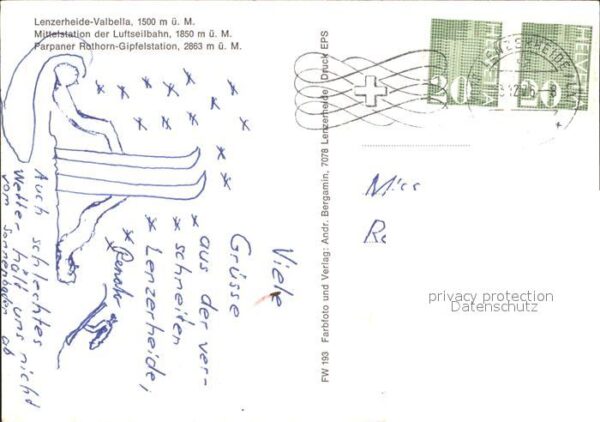 Lenzerheide-Valbella, 1500 m ü. M.
Mittelstation der Luftseilbahn, 1850 m ü. M.
Parpaner Rothorn-Gipfelstation, 2863 m ü. M.
Viele
Grüsse
aus der ver-
schneiten
Lenzerheide,
Renate
Auch schlechtes
Wetter hält uns nicht
vom Sonnenbaden ab
FW 193 Farbfoto und Verlag: Andr. Bergamin, 7078 Lenzerheide / Druck EPS
HELVETIA
20
HELVETIA
20
LENZERHEIDE
Miss
Re
privacy protection
Datenschutz